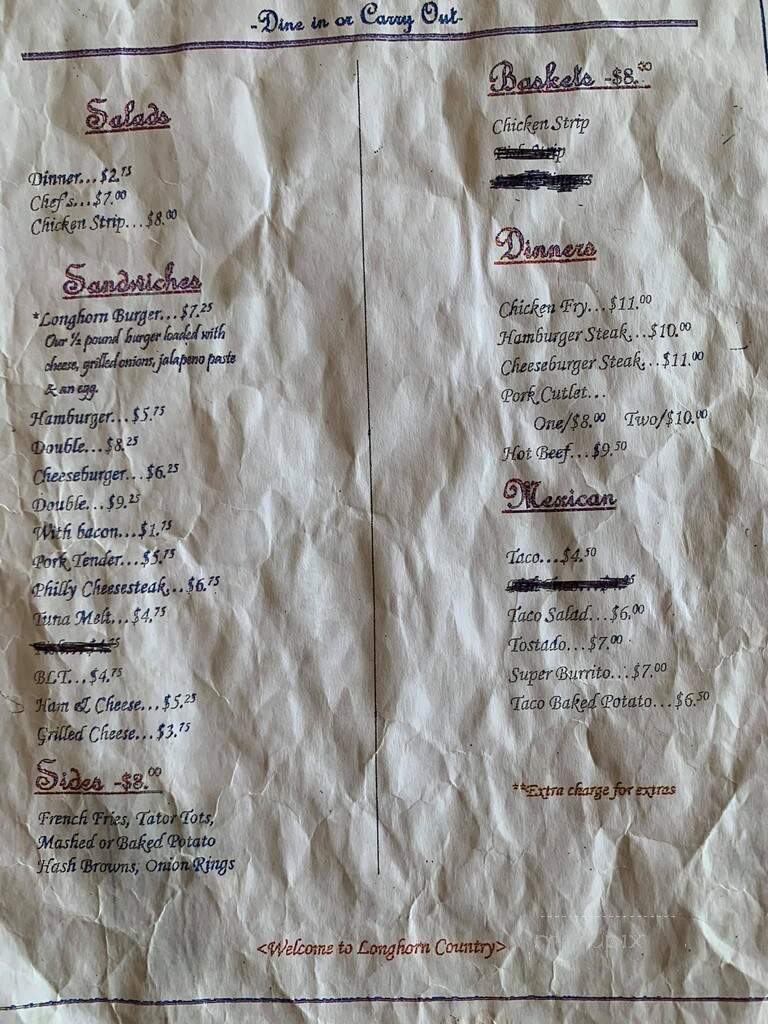 -Dine in or Carry Out-
Salads
Dinner...$2.75
Chef's...$7.00
Chicken Strip...$8.00
Sandwiches
*Longhorn Burger...$7.25
Our ½ pound burger loaded with
cheese, grilled onions, jalapeno paste
& an egg.
Hamburger...$5.75
Double...$8.25
Cheeseburger...$6.25
Double...$9.25
With bacon...$1.75
Pork Tender...$5.75
Philly Cheesesteak...$6.75
Tuna Melt...$4.75
BLT...$4.75
Ham & Cheese...$5.25
Grilled Cheese...$3.75
Sides -$3.00
French Fries, Tator Tots,
Mashed or Baked Potato
Hash Browns, Onion Rings
Baskets -$8.00
Chicken Strip
Dinners
Chicken Fry...$11.00
Hamburger Steak...$10.00
Cheeseburger Steak...$11.00
Pork Cutlet...
One/$8.00 Two/$10.00
Hot Beef...$9.50
Mexican
Taco...$4.50
Taco Salad...$6.00
Tostado...$7.00
Super Burrito...$7.00
Taco Baked Potato...$6.50
**Extra charge for extras
<Welcome to Longhorn Country>